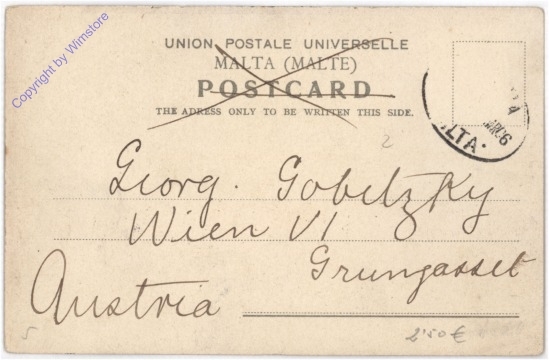 Copyright by Wimstore
UNION POSTALE UNIVERSELLE
MALTA (MALTE)
POSTCARD
THE ADRESS ONLY TO BE WRITTEN THIS SIDE.
LTA
2
Georg. Gobitzky
Wien VI
Grungasse6
Austria
5
2'50€